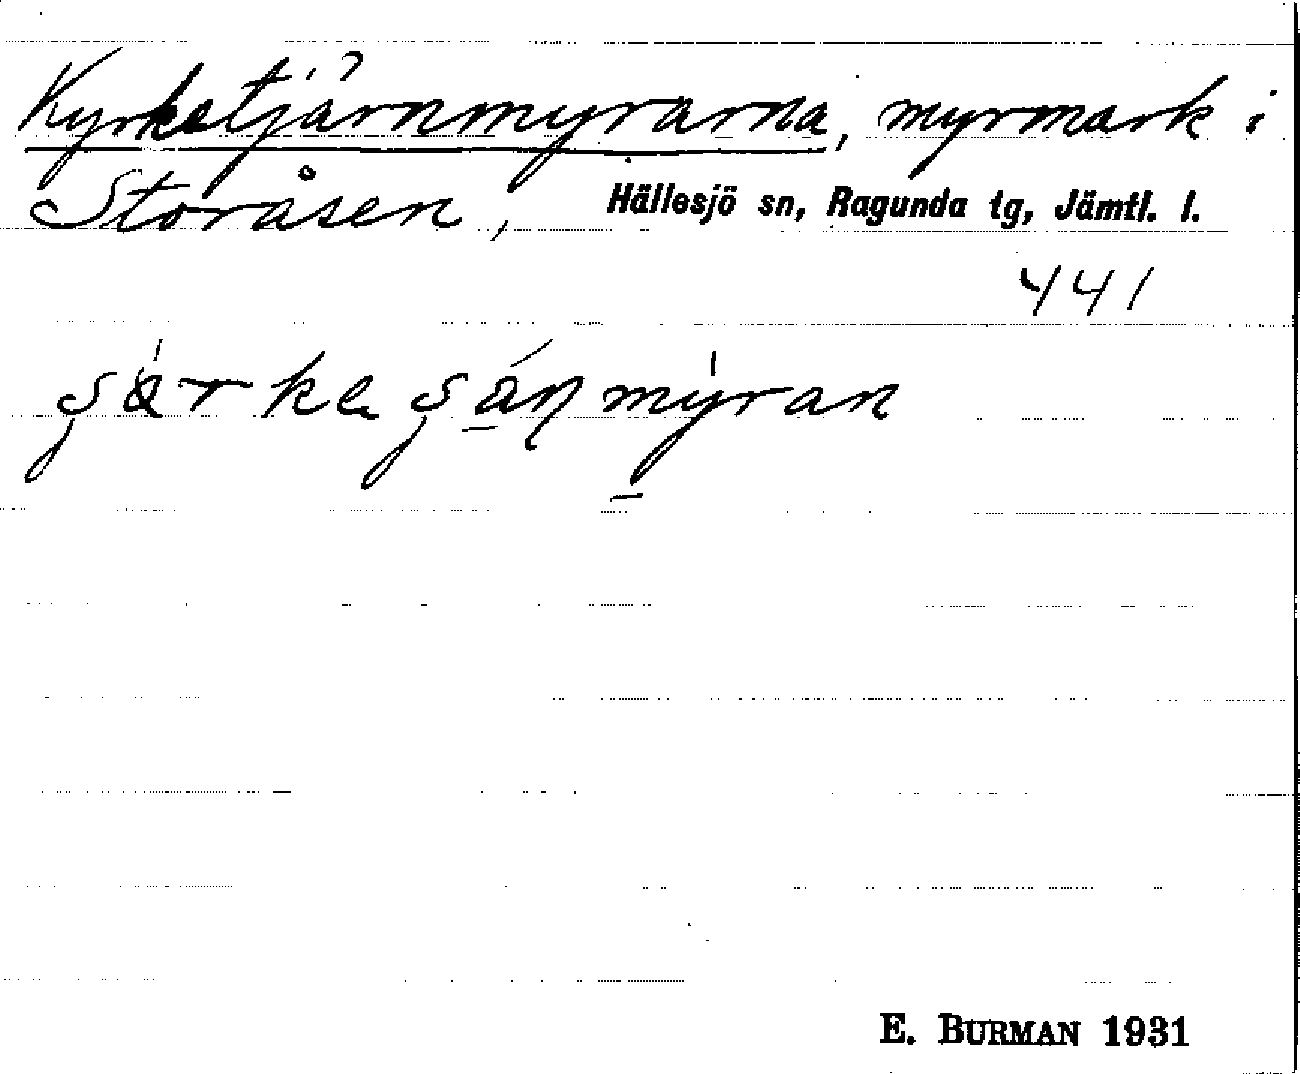 Kyrketjärnmyrarna, myrmark i
Storåsen, Hällesjö sn, Ragunda tg, Jämtl. l.
441
E. BURMAN 1931